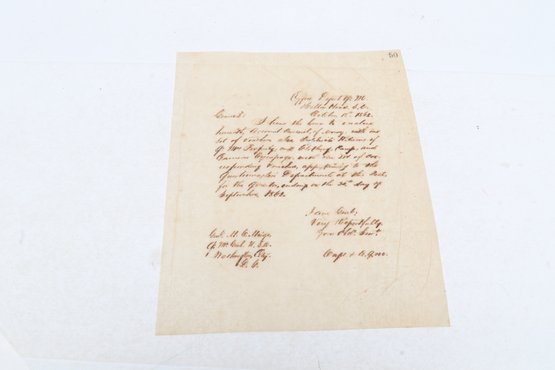 50
Office Depot Qr. M.
Hilton Head, S.C.
October 1st 1862.
General:
I have the honor to enclose
herewith Account Current of Money, with one
set of vouchers also Duplicate Returns of
Qr Mrs Property, and Clothing, Camp, and
Garrison Equipage, with one set of cor-
responding vouchers, appertaining to the
Quartermasters Department at this Post,
for the Quarter, ending on the 30th day of
September 1862.
I am Genl,
Very Respectfully
Your Obt. Servt.
Genl. M. C. Meigs
Qr Mr Genl. U.S.A.
Washington City
D.C.
Capt & A.Q.M.